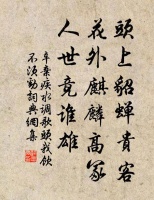 頭上貂蟬貴客
花外麒麟高冢
人世竟誰雄
辛棄疾水調歌頭我飲
不須勸詞典網集